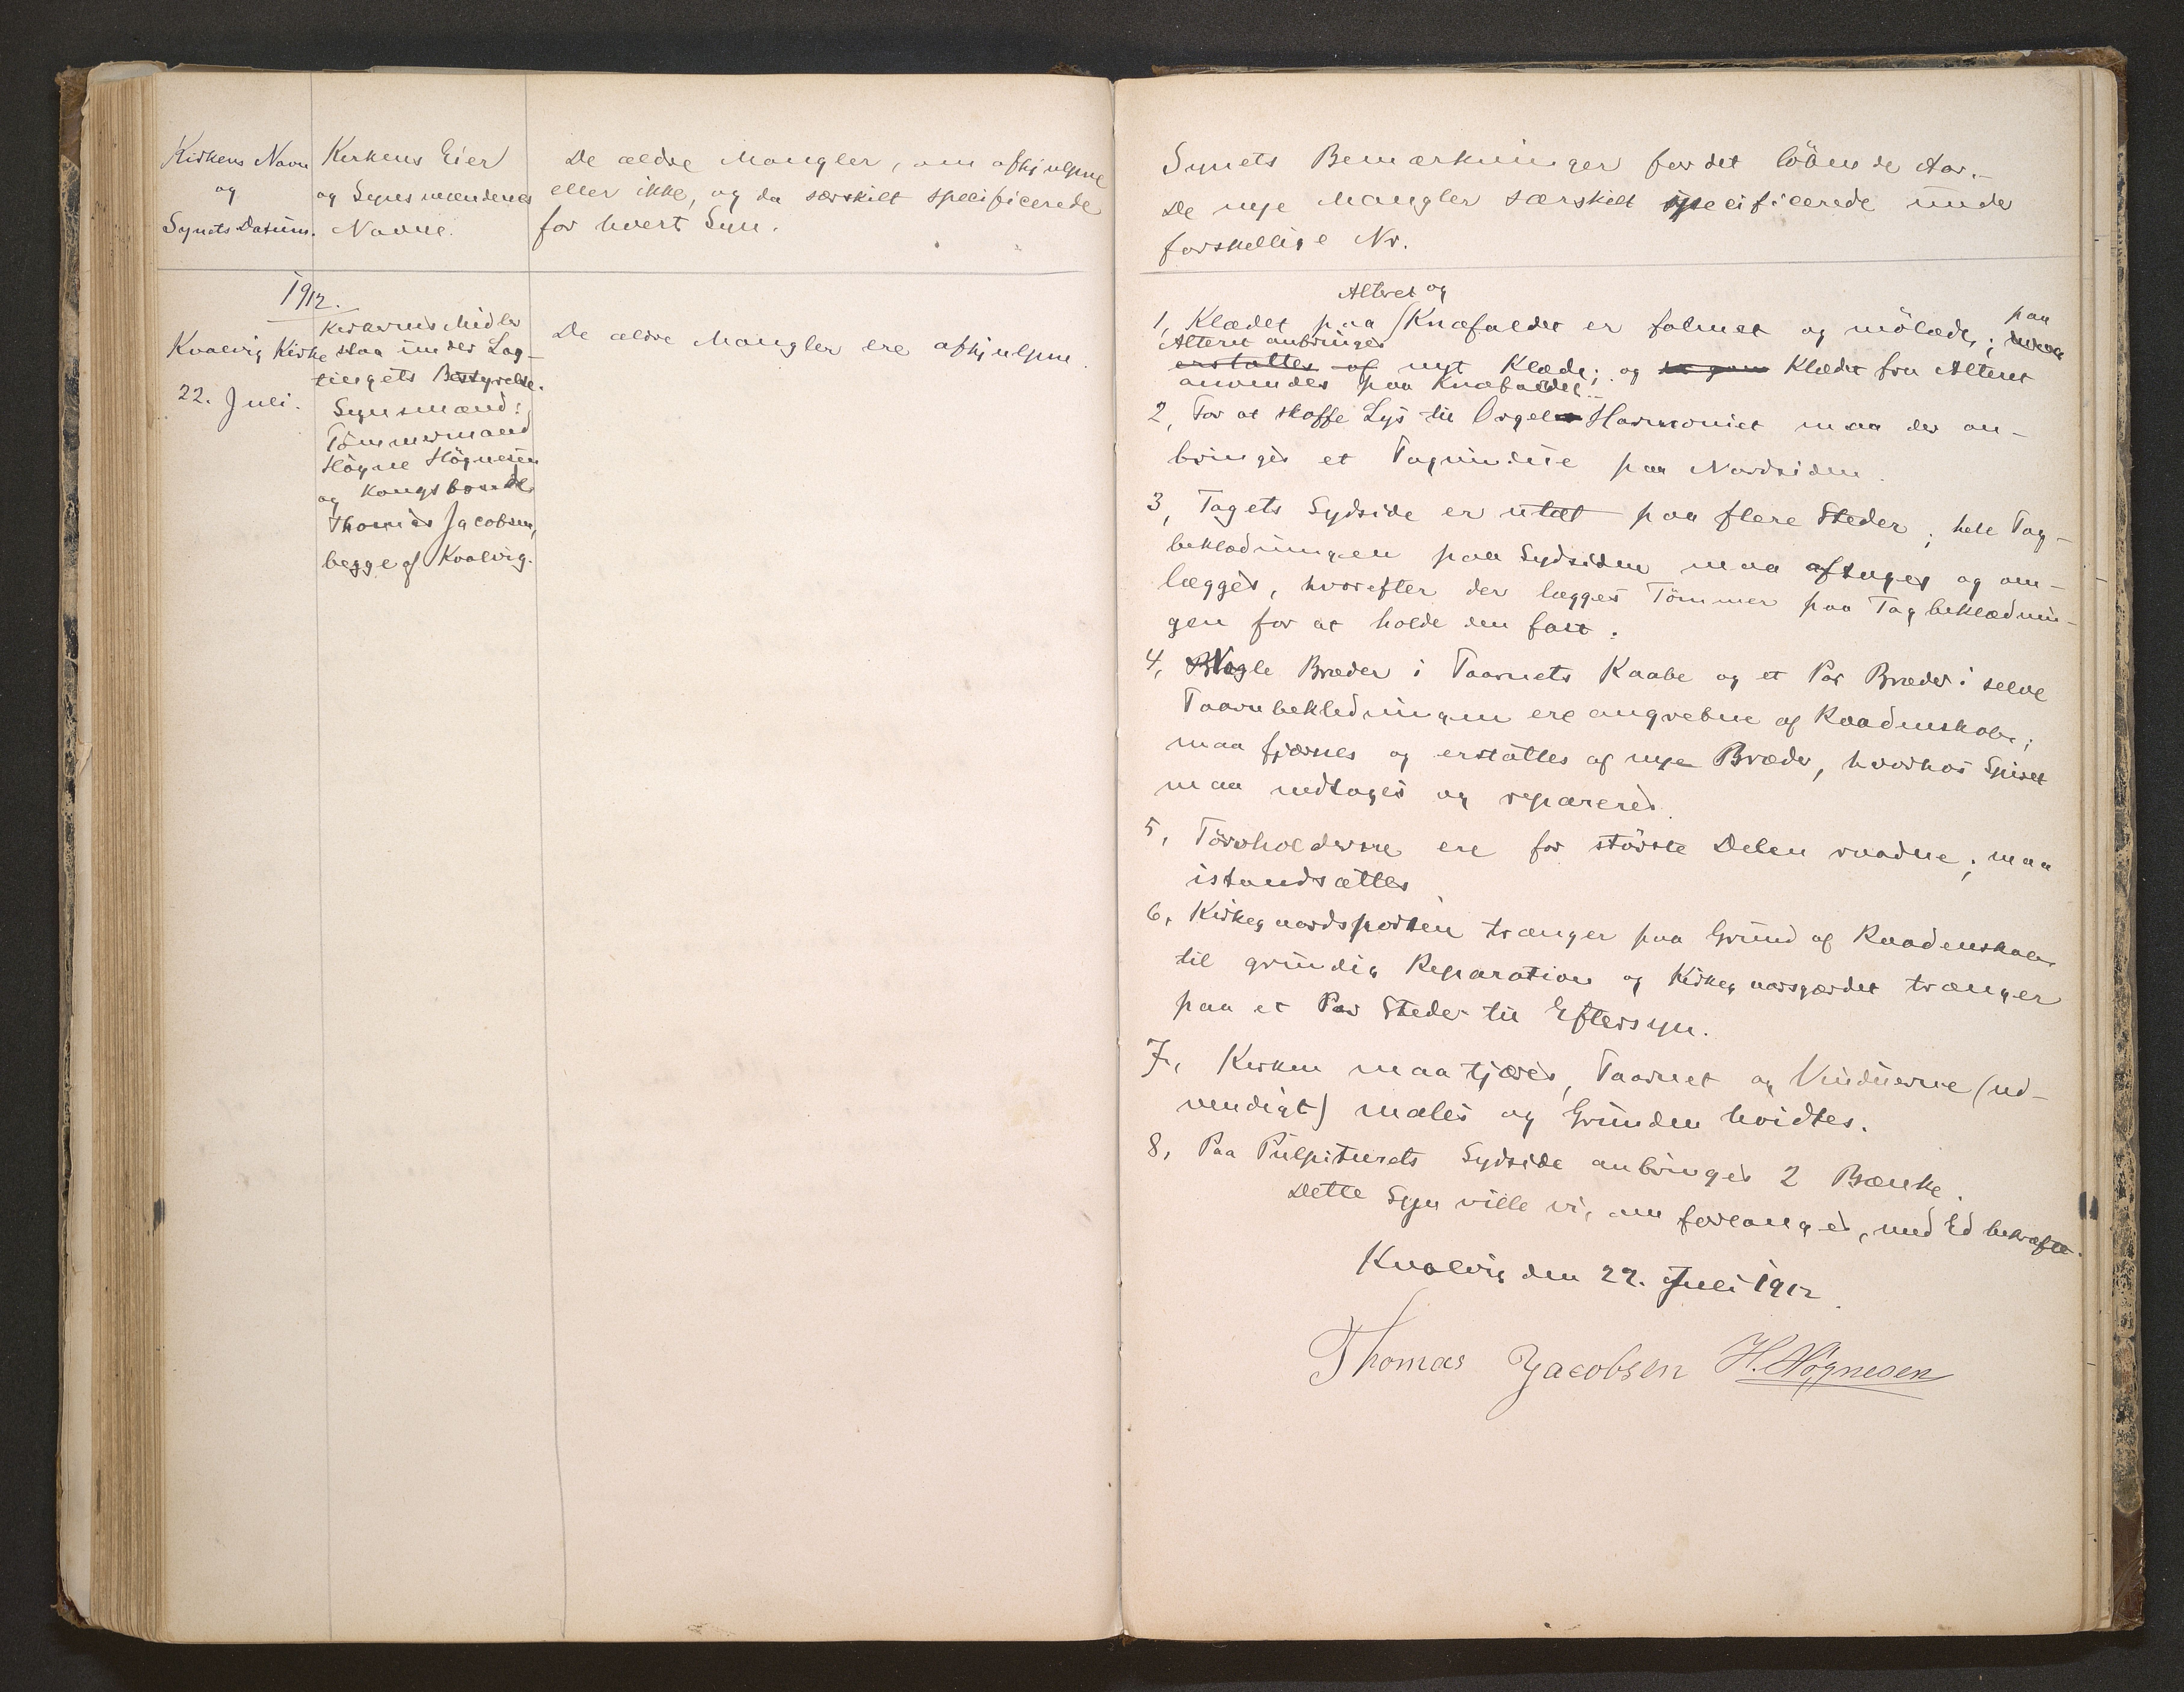 Kirkens Navn
og
Synets Datum.
Kirkens Eier
og Synsmændenes
Navne.
De ældre Mangler, om afhjulpne
eller ikke, og da særskilt specificerede
for hvert Syn.
1912.
Kvalvig Kirke
22. Juli.
Kirkernes Midler
staa under Lag-
tingets Bestyrelse.
Synsmænd:
Tömmermand
Högne Högnesen
og Kongsbonde
Thomas Jacobsen,
begge af Kvalvig.
De ældre Mangler ere afhjulpne.
Synets Bemærkninger for det löbende Aar.-
De nye Mangler særskilt specificerede under
forskellige Nr.
Alteret og
1, Klædet paa Knæfaldet er falmet og mölædt; paa
Alteret anbringes
erstattes af nyt Klæde; og Klædet fra Alteret
anvendes paa Knæfaldet.-
2, For at skaffe Lys til Orgel Harmoniet maa der an-
bringes et Tagvindue paa Nordsiden.
3, Tagets Sydside er utæt paa flere Steder; hele Tag-
beklædningen paa Sydsiden maa aftages og om-
lægges, hvorefter der lægges Tömmer paa Tagbeklædnin-
gen for at holde den fast.
4, Nogle Bræder i Taarnets Kaabe og et Par Bræder i selve
Taarnbeklædningen ere angrebne af Raadenskab;
maa fjærnes og erstattes af nye Bræder, hvorhos Spiret
maa nedtages og repareres.
5, Törvholderne ere for störste Delen raadne; maa
istandsættes
6, Kirkegaardsporten trænger paa Grund af Raadenskab
til grundig Reparation og Kirkegaarsgærdet trænger
paa et Par Steder til Eftersyn.
7, Kirken maa tjæres, Taarnet og Vinduerne (ud-
vendigt) males og Grunden hvidtes.
8, Paa Pulpiturets Sydside anbringes 2 Bænke.
Dette Syn ville vi, om forlanges, med Ed bekræfte.
Kvalvig den 22. Juli 1912.
Thomas Jacobsen H. Högnesen